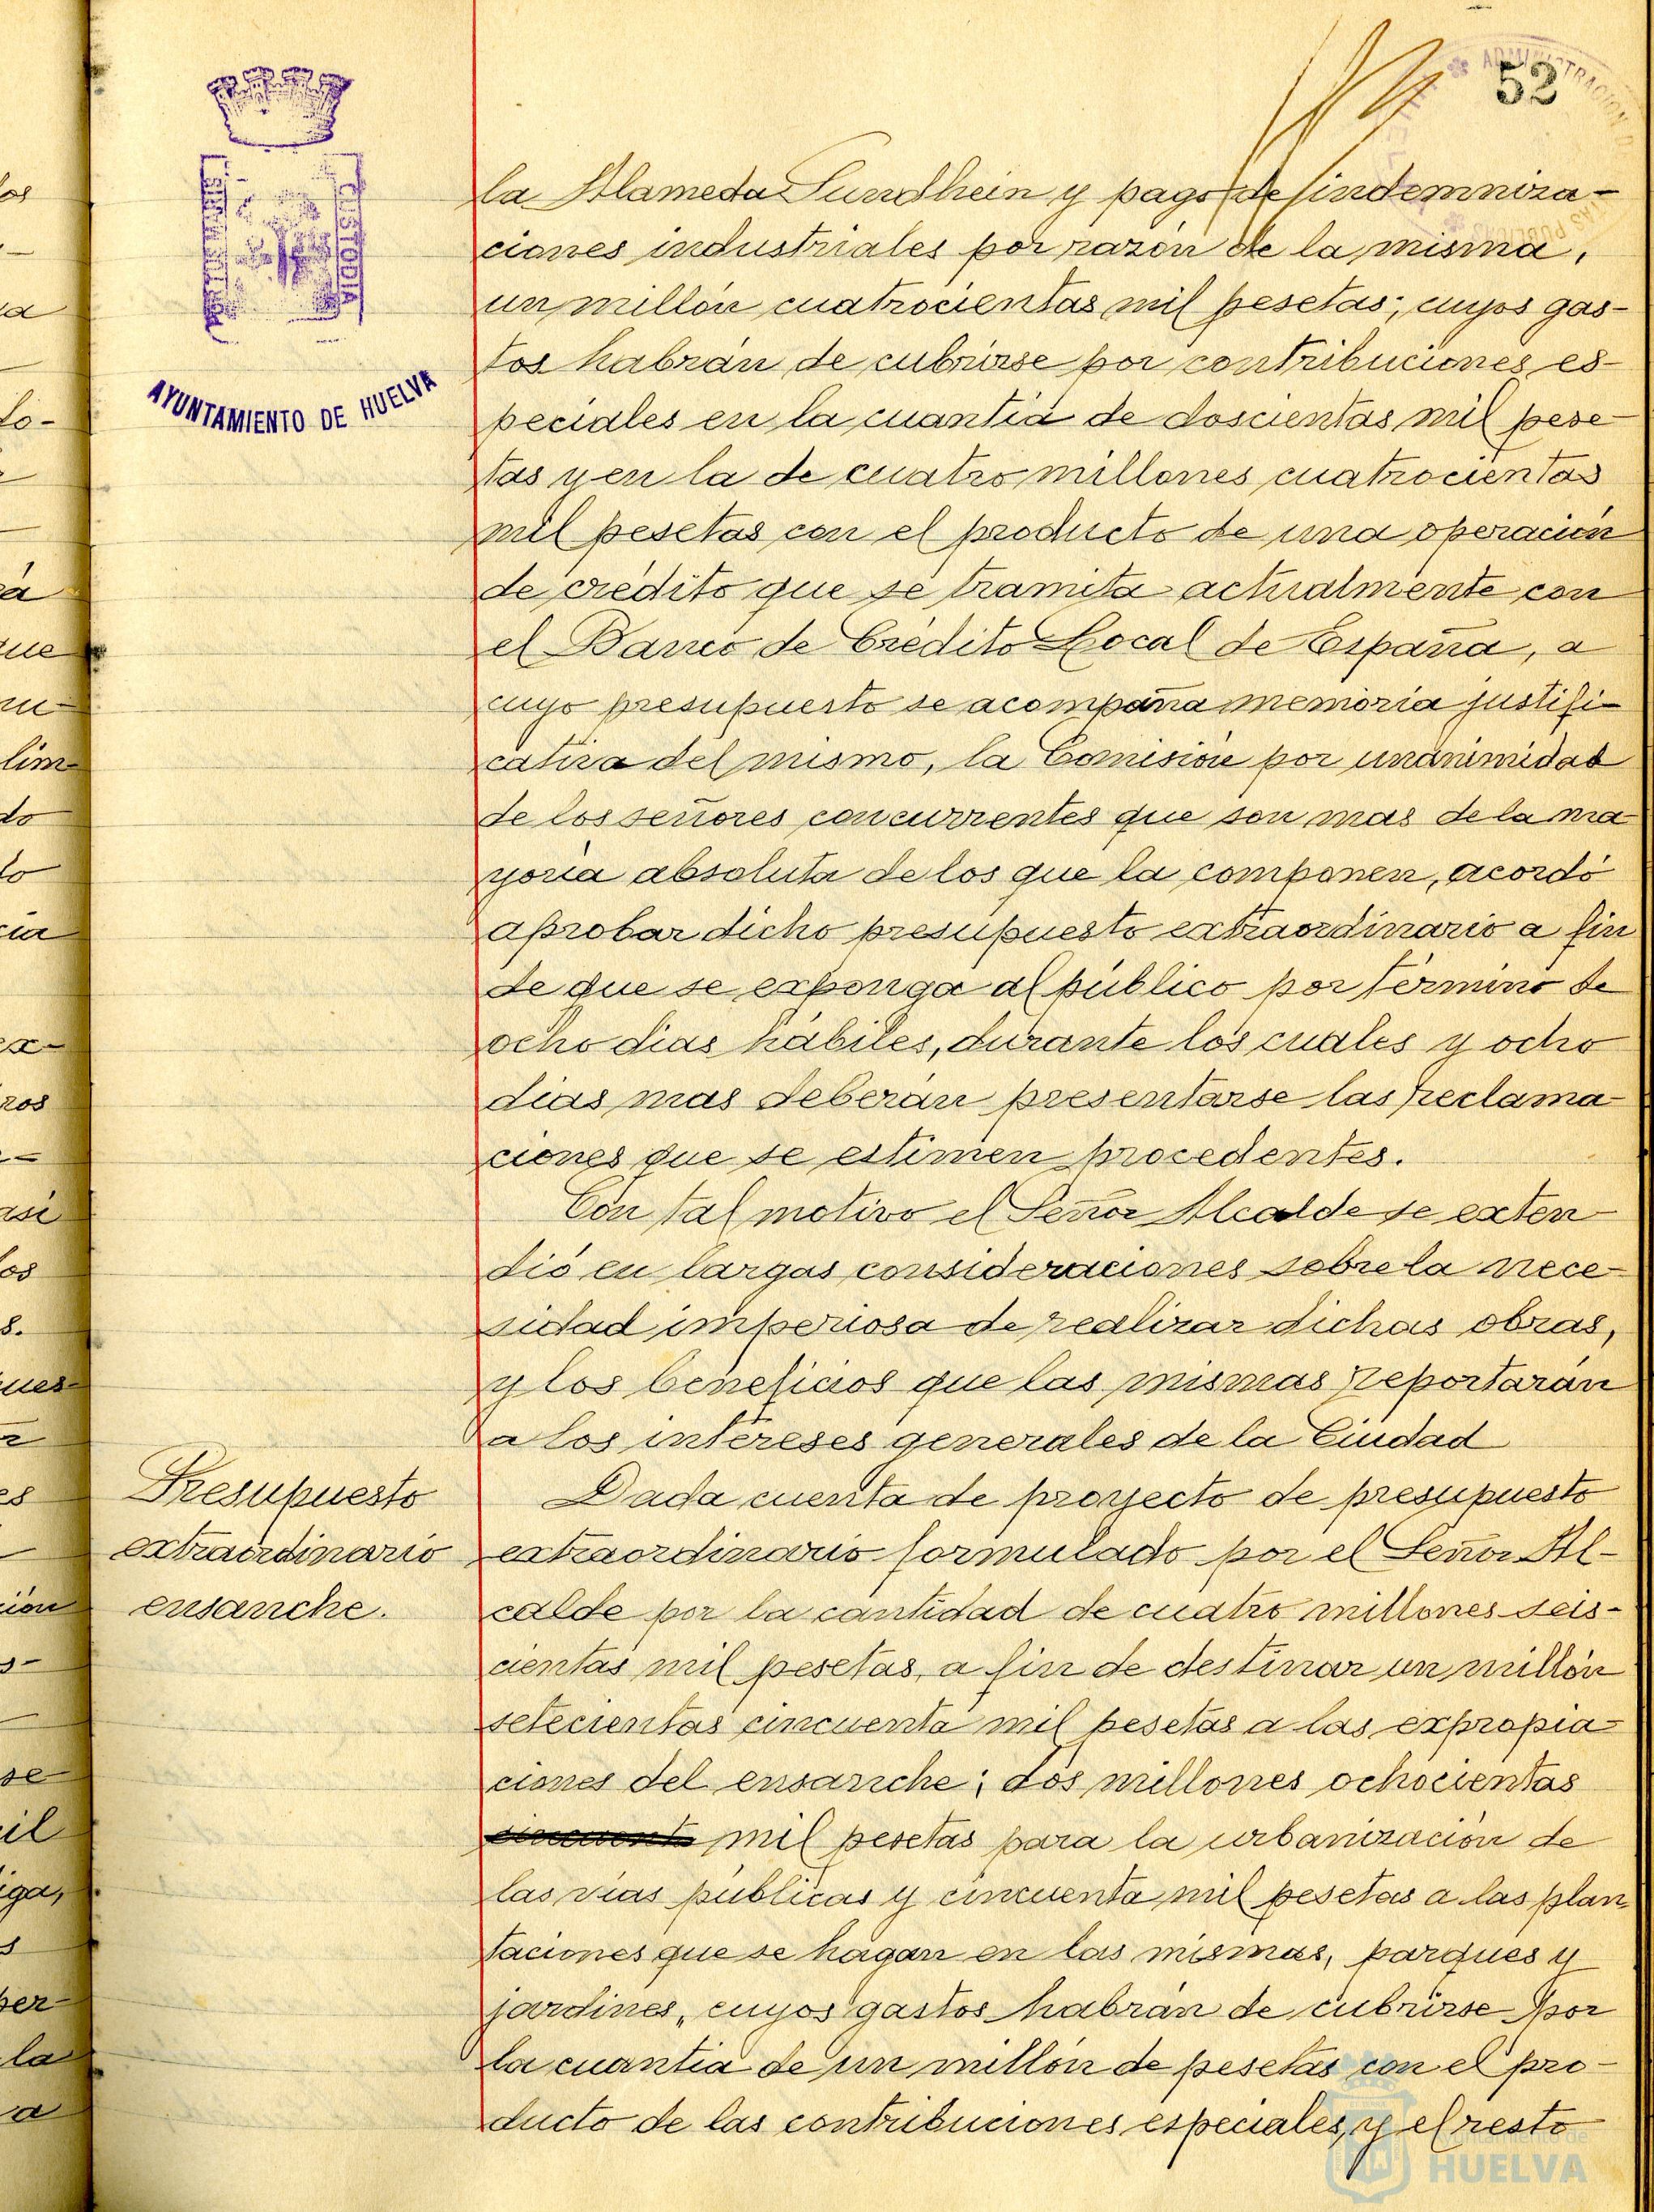 52
ADMINISTRACION
PORTUS MARIS
CUSTODIA
AYUNTAMIENTO DE HUELVA
la Alameda Sundhein y pago de indemniza-
ciones industriales por razón de la misma,
un millón cuatrocientas mil pesetas; cuyos gas-
tos habrán de cubrirse por contribuciones es-
peciales en la cuantía de doscientas mil pese-
tas y en la de cuatro millones cuatrocientas
mil pesetas con el producto de una operación
de crédito que se tramita actualmente con
el Banco de Crédito Local de España, a
cuyo presupuesto se acompaña memoria justifi-
cativa del mismo, la Comisión por unanimidad
de los señores concurrentes que son mas de la ma-
yoría absoluta de los que la componen, acordó
aprobar dicho presupuesto extraordinario a fin
de que se exponga al público por término de
ocho días hábiles, durante los cuales y ocho
días mas deberán presentarse las reclama-
ciones que se estimen procedentes.
Con tal motivo el Señor Alcalde se exten-
dió en largas consideraciones sobre la nece-
sidad imperiosa de realizar dichas obras,
y los beneficios que las mismas reportarán
a los intereses generales de la Ciudad
Presupuesto
extraordinario
ensanche.
Dada cuenta de proyecto de presupuesto
extraordinario formulado por el Señor Al-
calde por la cantidad de cuatro millones seis-
cientas mil pesetas, a fin de destinar un millón
setecientas cincuenta mil pesetas a las expropia-
ciones del ensanche; dos millones ochocientas
cincuenta mil pesetas para la urbanización de
las vías públicas y cincuenta mil pesetas a las plan-
taciones que se hagan en las mismas, parques y
jardines, cuyos gastos habrán de cubrirse por
la cuantía de un millón de pesetas con el pro-
ducto de las contribuciones especiales, y el resto
Ayuntamiento de
HUELVA